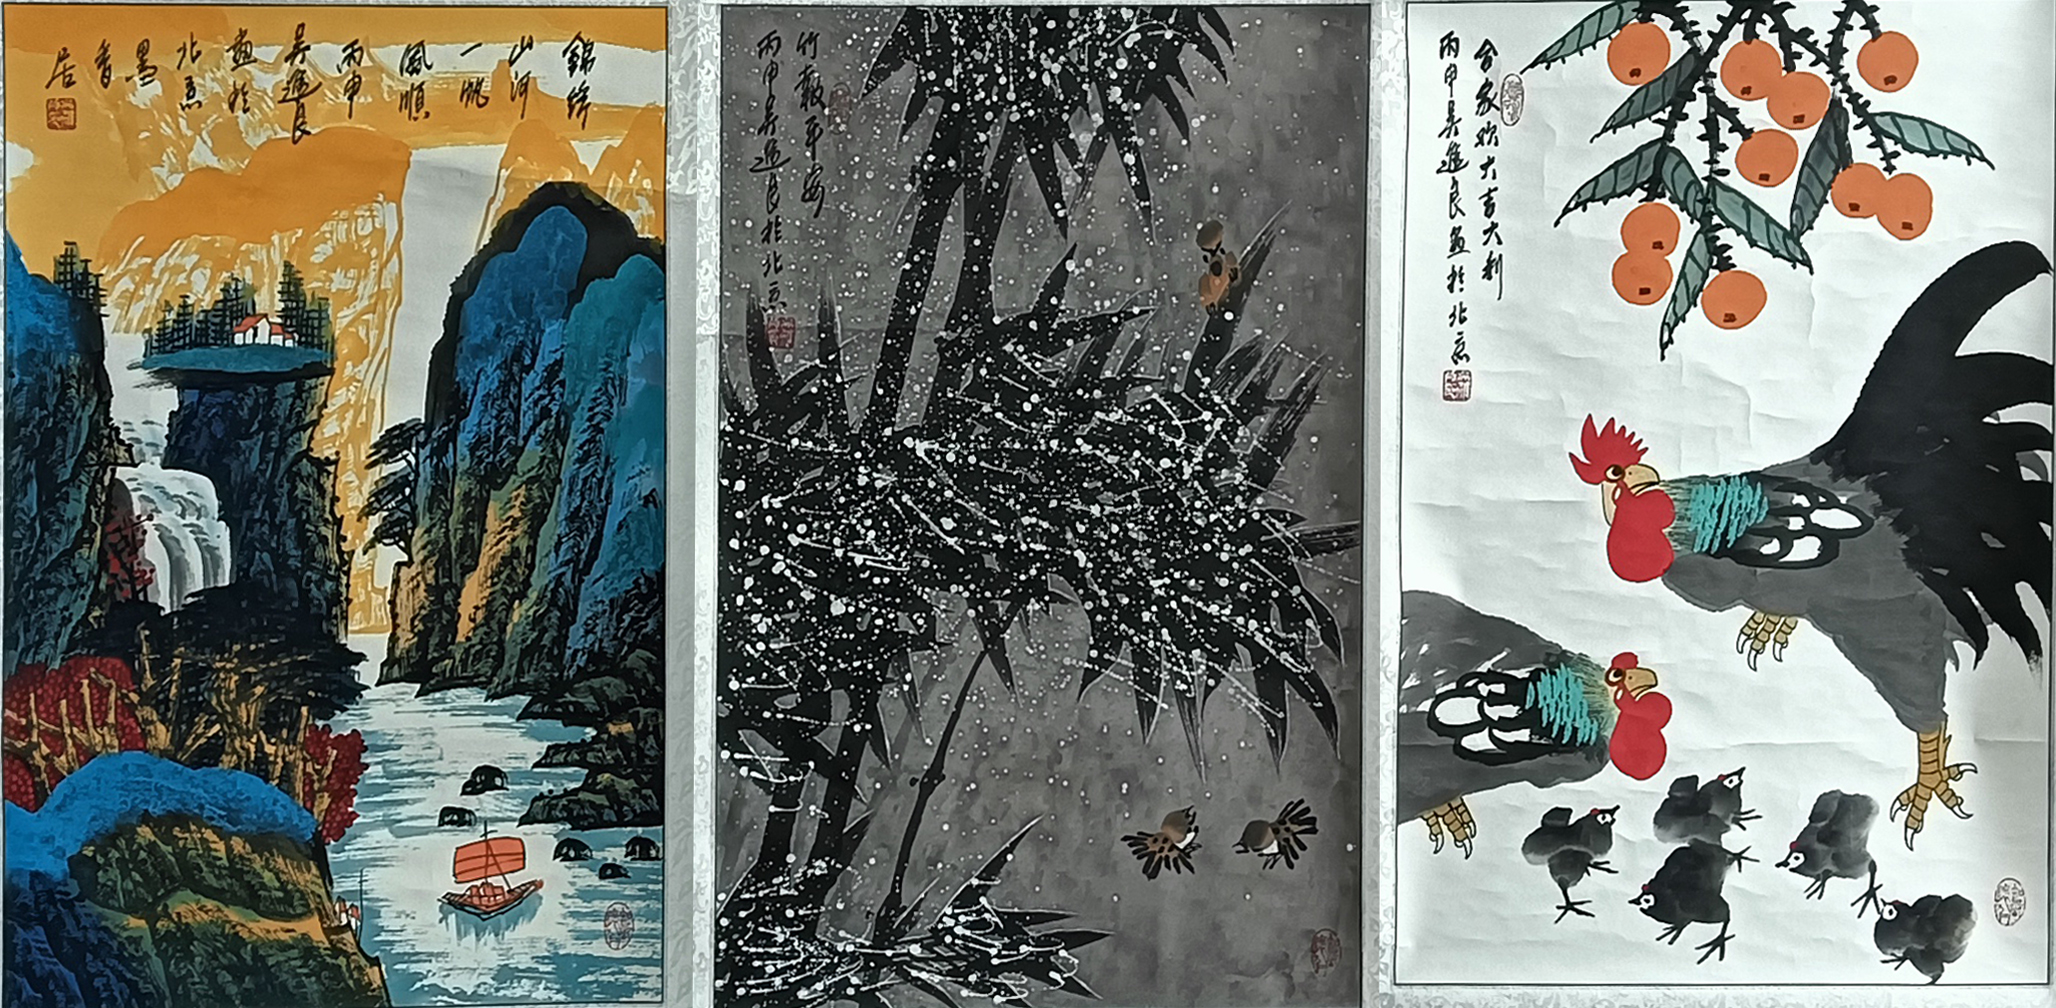 錦綉
山河
一帆
風順
丙申
吴進良
畫於
北京
墨
香
居
竹報平安
丙申吴進良於北京
合家欢大吉大利
丙申吴進良畫於北京